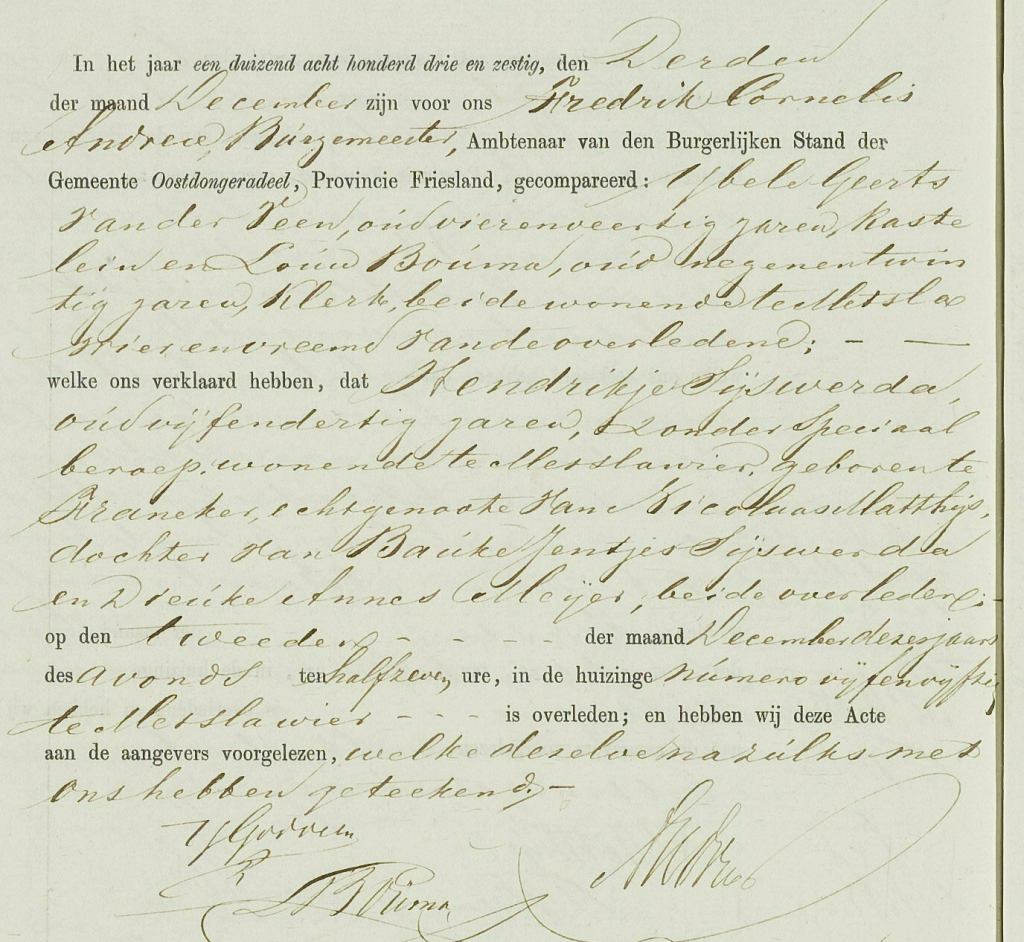 In het jaar een duizend acht honderd drie en zestig, den Derden
der maand December zijn voor ons Fredrik Cornelis
Andreæ, Burgemeester, Ambtenaar van den Burgerlijken Stand der
Gemeente Oostdongeradeel, Provincie Friesland, gecompareerd: IJbele Geerts
van der Veen, oud vierenveertig jaren, Kaste
lein en Louw Bouma, oud negenentwin
tig jaren, Klerk, beide wonende te Metsla
wier en vreemd van de overledene; - -
welke ons verklaard hebben, dat Hendrikje Sijswerda,
oud vijfendertig jaren, zonder speciaal
beroep, wonende te Metslawier, geboren te
Franeker, echtgenoote van Nicolaas Matthijs,
dochter van Bauke Jentjes Sijswerda
en Dieuke Annes Meijer, beide overleden;
op den tweeden - - - - der maand December dezes jaars
des avonds ten half zeven ure, in de huizinge numero vijfenvijftig
te Metslawier - - - is overleden; en hebben wij deze Acte
aan de aangevers voorgelezen, welke dezelve na zulks met
ons hebben geteekend, -
L Bouma